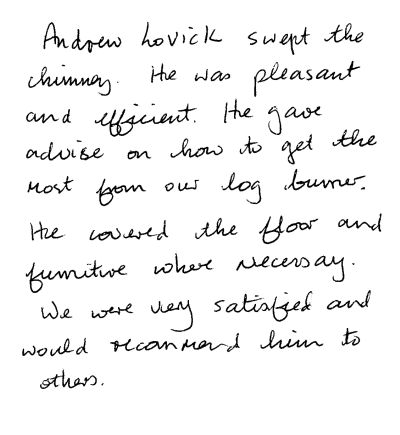 Andrew Lovick swept the
chimney. He was pleasant
and efficient. He gave
advise on how to get the
most from our log burner.
He covered the floor and
furnitive where necessay.
We were very satisfied and
would recommend him to
others.